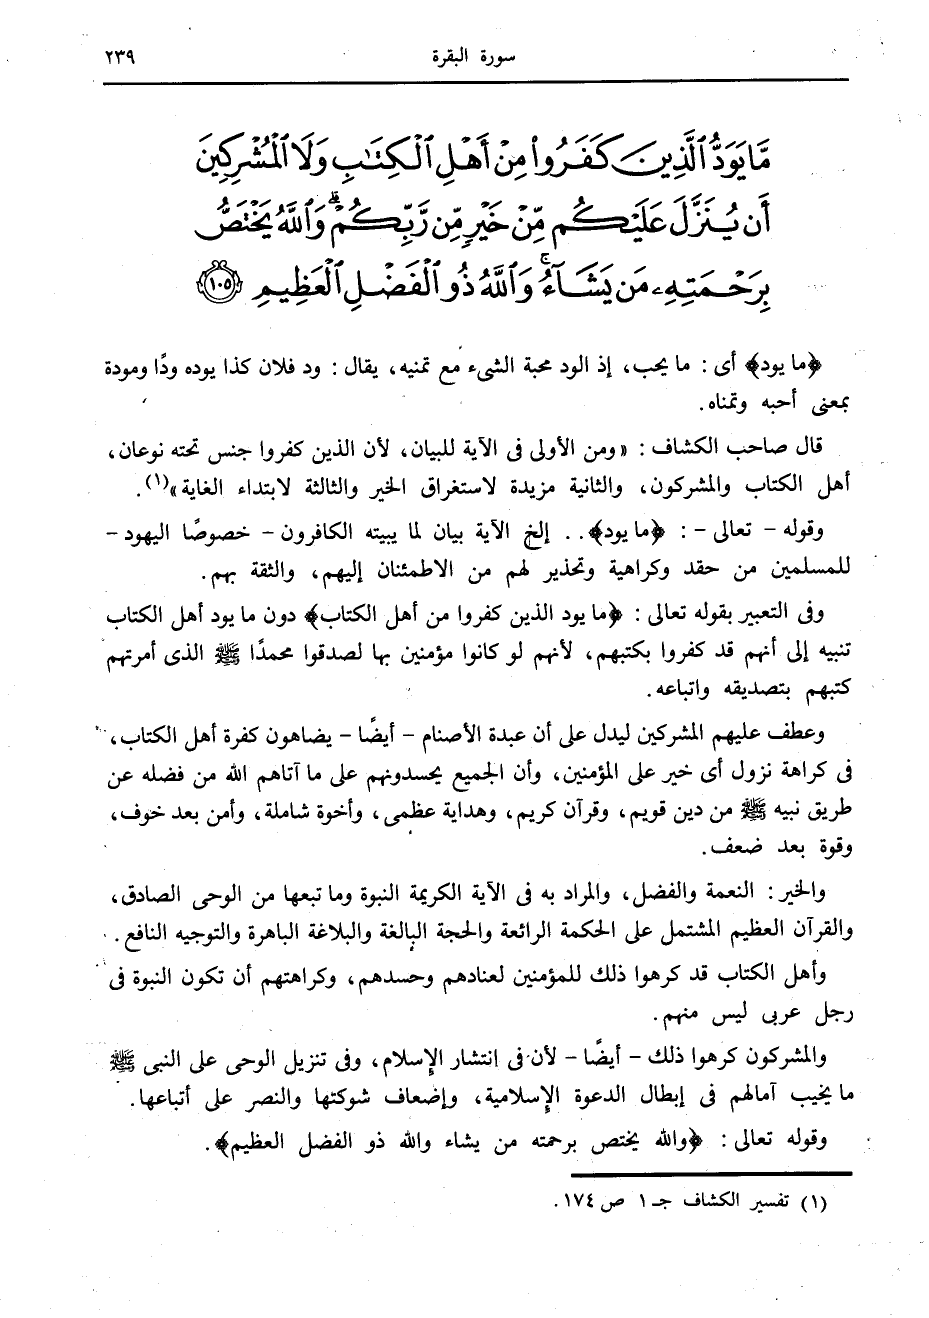 سورة البقرة ٢٣٩
مَّا يَوَدُّ ٱلَّذِينَ كَفَرُوا۟ مِنْ أَهْلِ ٱلْكِتَٰبِ وَلَا ٱلْمُشْرِكِينَ
أَن يُنَزَّلَ عَلَيْكُم مِّنْ خَيْرٍ مِّن رَّبِّكُمْ ۗ وَٱللَّهُ يَخْتَصُّ
بِرَحْمَتِهِۦ مَن يَشَآءُ ۚ وَٱللَّهُ ذُو ٱلْفَضْلِ ٱلْعَظِيمِ ١٠٥
﴿ما يود﴾ أى : ما يحب، إذ الود محبة الشىء مع تمنيه، يقال : ود فلان كذا يوده ودًّا ومودة
بمعنى أحبه وتمناه.
قال صاحب الكشاف : «ومن الأولى فى الآية للبيان، لأن الذين كفروا جنس تحته نوعان،
أهل الكتاب والمشركون، والثانية مزيدة لاستغراق الخير والثالثة لابتداء الغاية»(١).
وقوله - تعالى - : ﴿ما يود﴾.. إلخ الآية بيان لما يبيته الكافرون - خصوصًا اليهود -
للمسلمين من حقد وكراهية وتحذير لهم من الاطمئنان إليهم، والثقة بهم.
وفى التعبير بقوله تعالى : ﴿ما يود الذين كفروا من أهل الكتاب﴾ دون ما يود أهل الكتاب
تنبيه إلى أنهم قد كفروا بكتبهم، لأنهم لو كانوا مؤمنين بها لصدقوا محمدًا ﷺ الذى أمرتهم
كتبهم بتصديقه واتباعه.
وعطف عليهم المشركين ليدل على أن عبدة الأصنام - أيضًا - يضاهون كفرة أهل الكتاب،
فى كراهة نزول أى خير على المؤمنين، وأن الجميع يحسدونهم على ما آتاهم الله من فضله عن
طريق نبيه ﷺ من دين قويم، وقرآن كريم، وهداية عظمى، وأخوة شاملة، وأمن بعد خوف،
وقوة بعد ضعف.
والخير : النعمة والفضل، والمراد به فى الآية الكريمة النبوة وما تبعها من الوحى الصادق،
والقرآن العظيم المشتمل على الحكمة الرائعة والحجة البالغة والبلاغة الباهرة والتوجيه النافع.
وأهل الكتاب قد كرهوا ذلك للمؤمنين لعنادهم وحسدهم، وكراهتهم أن تكون النبوة فى
رجل عربى ليس منهم.
والمشركون كرهوا ذلك - أيضًا - لأن فى انتشار الإسلام، وفى تنزيل الوحى على النبى ﷺ
ما يخيب آمالهم فى إبطال الدعوة الإسلامية، وإضعاف شوكتها والنصر على أتباعها.
وقوله تعالى : ﴿والله يختص برحمته من يشاء والله ذو الفضل العظيم﴾.
(١) تفسير الكشاف جـ ١ ص ١٧٤.